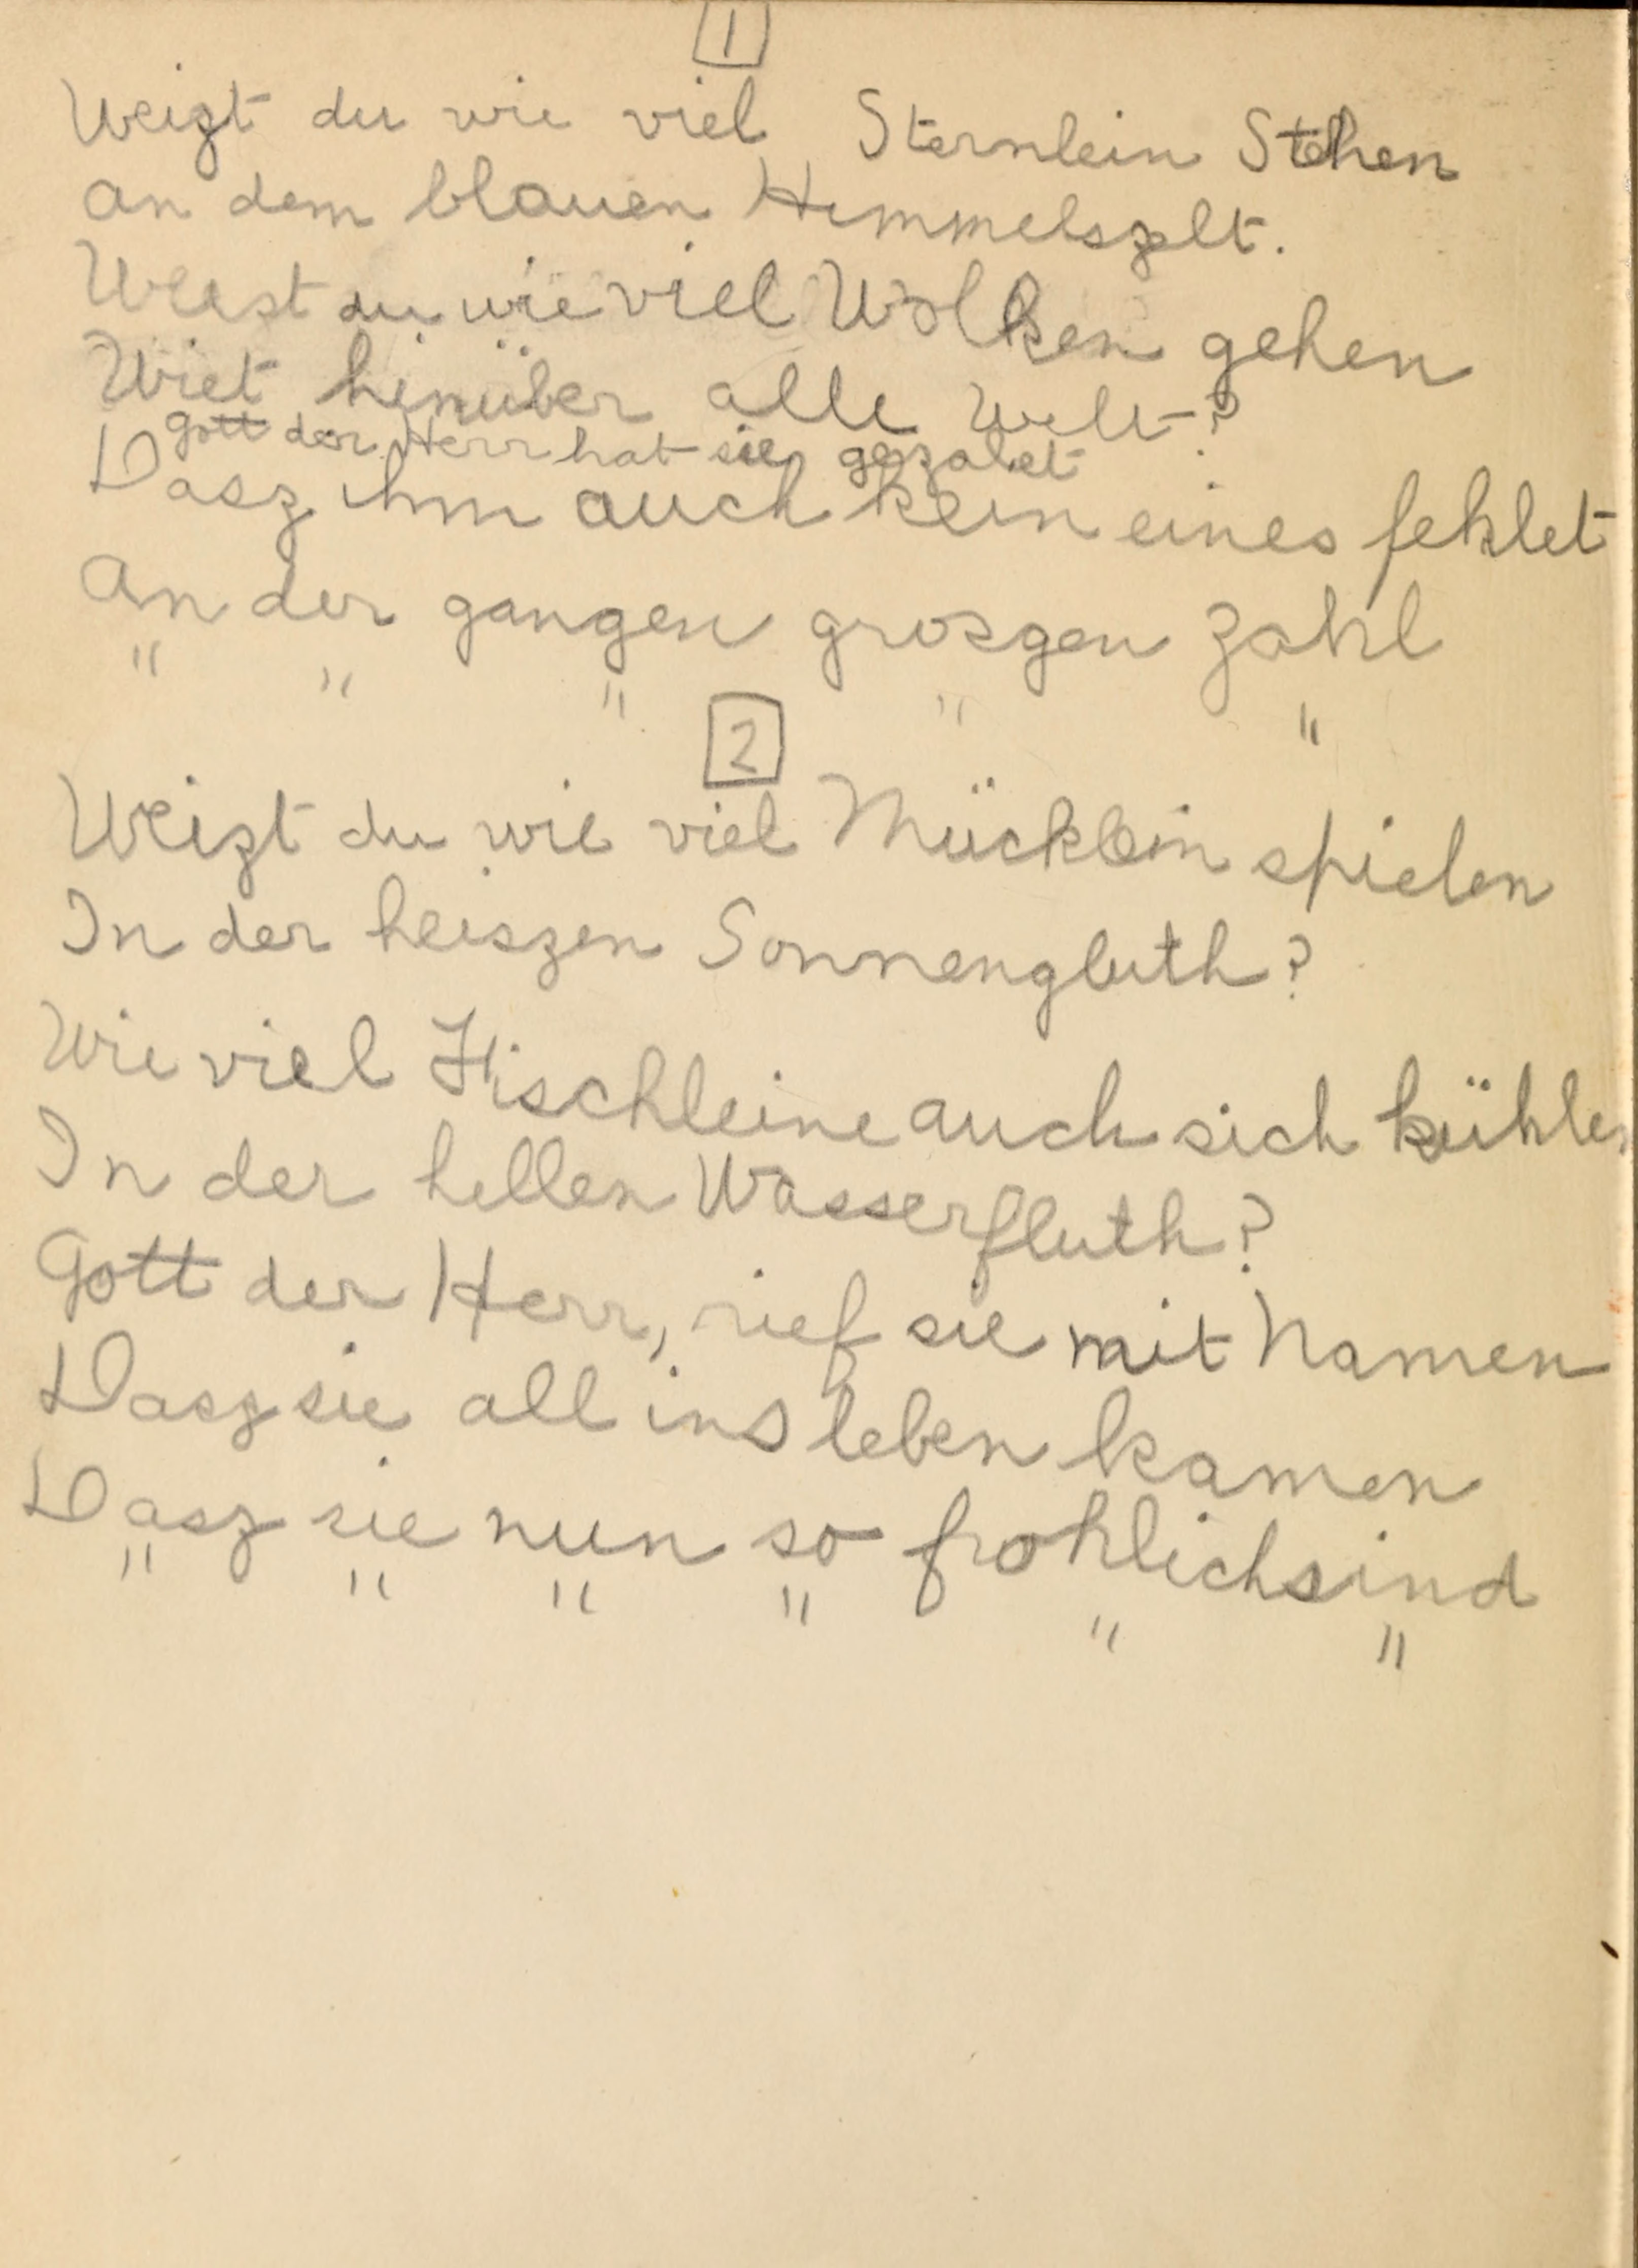 1
Weizt du wie viel Sternlein Stehen
an dem blauen Himmelszelt.
Weist du wie viel Wolken gehen
Wiet hinüber alle Welt?
Gott der Herr hat sie gezalet
Dasz ihm auch kein eines fehlet
An der gangen groszen Zahl
" " " " "
2
Weizt du wie viel Mücklein spielen
In der heiszen Sonnengluth?
Wie viel Fischleine auch sich kühlen
In der hellen Wasserfluth?
Gott der Herr, rief sie mit Namen
Dasz sie all ins leben kamen
Dasz sie nun so frohlich sind
" " " " " "